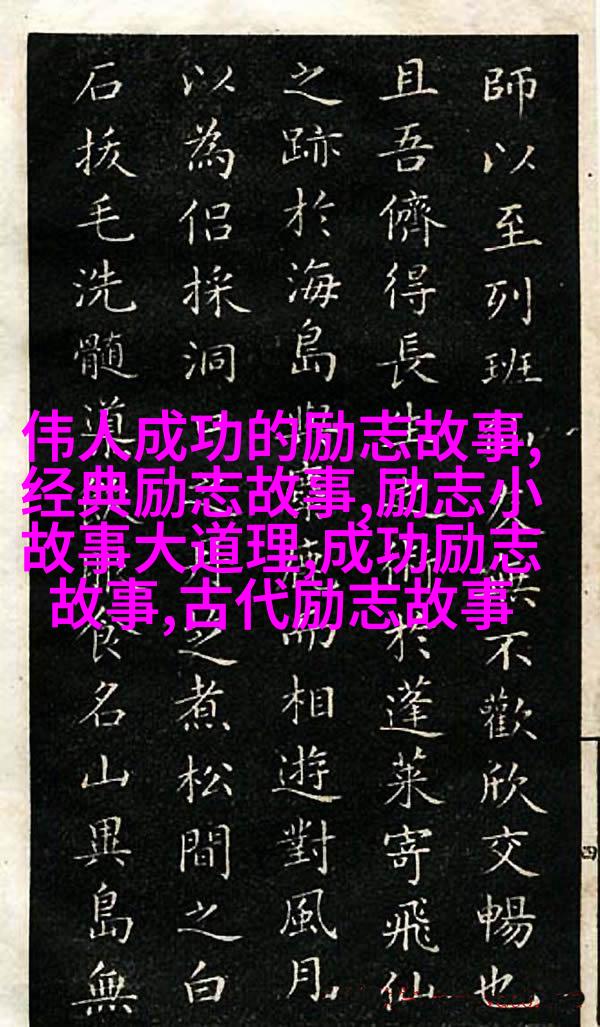 師以至列班不歡欣交暢也
且吾儕得長生之術於蓬萊寄飛仙
之跡於海島將而相遊對風月
以為侶採洞之煮松間之白
石拔毛洗髓食名山異島無
伟人成功的励志故事,
经典励志故事,励志小
故事大道理,成功励志
故事,古代励志故事
四